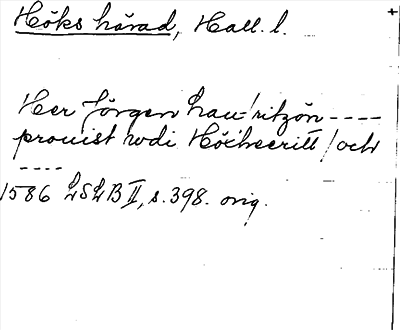 Höks härad, Hall. l.
Herr Jörgen Lau-/ritzön ----
prouist wdi Höcheeritt / och
----
1586 LSLB II, s. 398. orig.